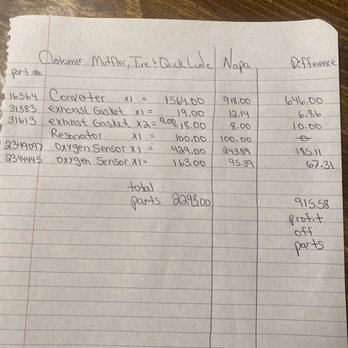 Customer Muffler, Tire & Quick Lude Napa Difference
part #
16564 Converter x1 = 1564.00 918.00 646.00
31383 exhaust Gasket x1 = 19.00 12.14 6.86
31613 exhaust Gasket x2= 9.00 18.00 8.00 10.00
Resonator x1 = 100.00 100.00 0
2349097 Oxygen Sensor x1 = 429.00 243.89 185.11
2344445 Oxygen Sensor x1= 163.00 95.39 67.31
total
parts 2293.00 915.58
profit
off
parts